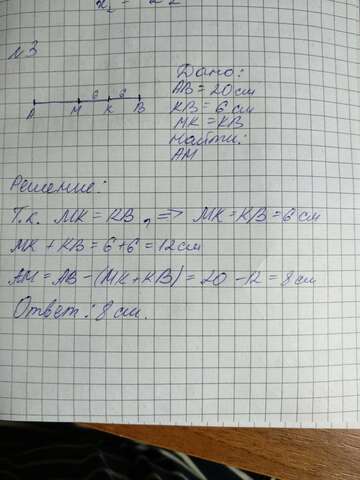 x₂ = 22
№3
6 6
A M K B
Дано:
AB = 20 см
KB = 6 см
MK = KB
Найти:
AM
Решение:
Т.к. MK = KB, => MK = KB = 6 см
MK + KB = 6 + 6 = 12 см
AM = AB - (MK + KB) = 20 - 12 = 8 см
Ответ: 8 см.